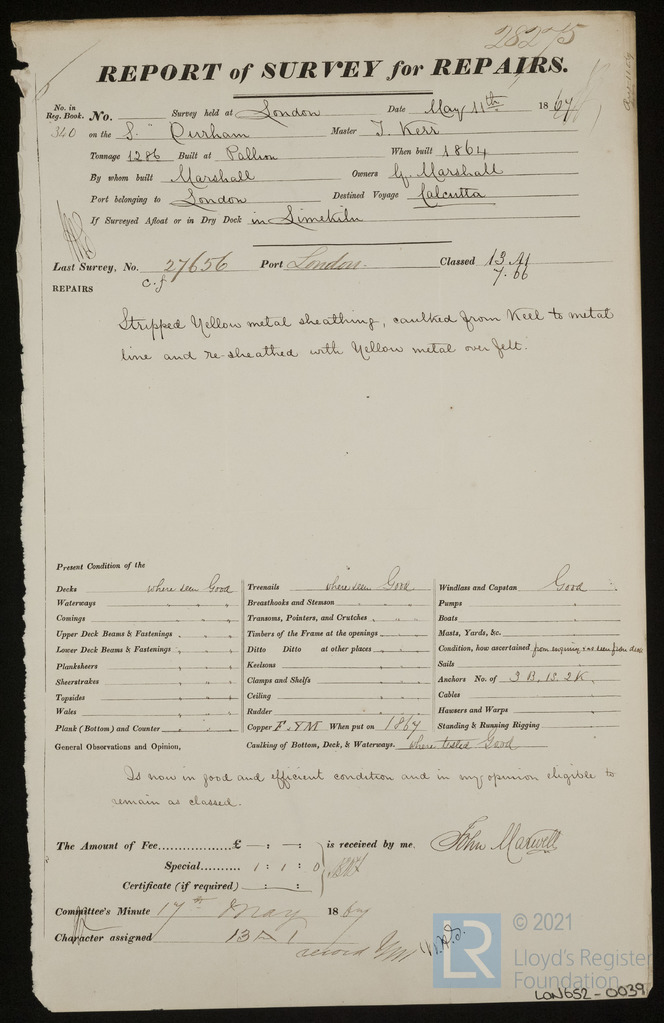 28275
REPORT of SURVEY for REPAIRS.
No. in Reg. Book. No. Survey held at London Date May 11th 1867
340 on the S. " Durham Master T. Kerr
Tonnage 1286 Built at Pallion When built 1864
By whom built Marshall Owners G. Marshall
Port belonging to London Destined Voyage Calcutta
If Surveyed Afloat or in Dry Dock in Limekiln
Last Survey, No. 27656 Port London Classed 13 A1
c.f 7.66
REPAIRS
Stripped Yellow metal sheathing, caulked from Keel to metal
line and re-sheathed with Yellow metal over felt.
Present Condition of the
Decks where seen Good
Waterways " "
Comings " "
Upper Deck Beams & Fastenings " "
Lower Deck Beams & Fastenings " "
Planksheers " "
Sheerstrakes " "
Topsides " "
Wales " "
Plank (Bottom) and Counter " "
Treenails where seen Good
Breasthooks and Stemson " "
Transoms, Pointers, and Crutches " "
Timbers of the Frame at the openings " "
Ditto Ditto at other places " "
Keelsons " "
Clamps and Shelfs " "
Ceiling " "
Rudder " "
Copper F. & YM When put on 1867
Windlass and Capstan Good
Pumps "
Boats "
Masts, Yards, &c. "
Condition, how ascertained from enquiry & as seen from deck
Sails "
Anchors No. of 3 B. 1S. 2K.
Cables "
Hawsers and Warps "
Standing & Running Rigging "
General Observations and Opinion, Caulking of Bottom, Deck, & Waterways. where tested Good
Is now in good and efficient condition and in my opinion eligible to
remain as classed.
The Amount of Fee £ - : - : is received by me. John Maxwell
Special 1 : 1 : 0
Certificate (if required) - : - :
Committee's Minute 17th May 1867
Character assigned 13 A 1
record YM W.A.S.
© 2021
LR
Lloyd's Register
Foundation
LON652-0039